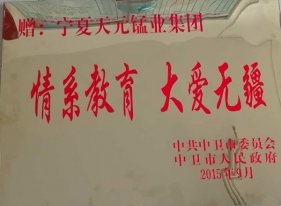 赠：宁夏天元锰业集团
情系教育 大爱无疆
中共中卫市委员会
中卫市人民政府
2015年9月